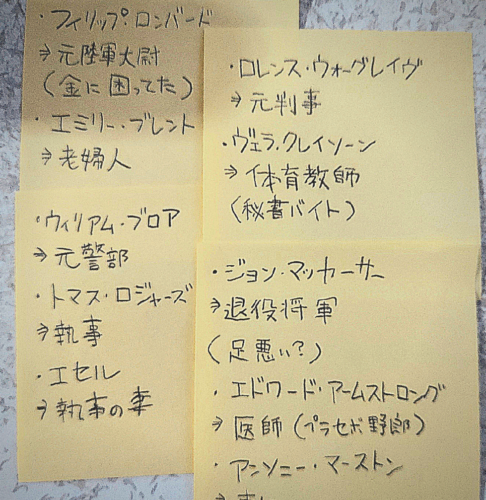 ・フィリップ・ロンバード
⇒元陸軍大尉
(金に困ってた)
・エミリー・ブレント
⇒老婦人
・ロレンス・ウォーグレイヴ
⇒元判事
・ヴェラ・クレイソーン
⇒体育教師
(秘書バイト)
・ウィリアム・ブロア
⇒元警部
・トマス・ロジャーズ
⇒執事
・エセル
⇒執事の妻
・ジョン・マッカーサー
⇒退役将軍
(足悪い?)
・エドワード・アームストロング
⇒医師(プラセボ野郎)
・アンソニー・マーストン